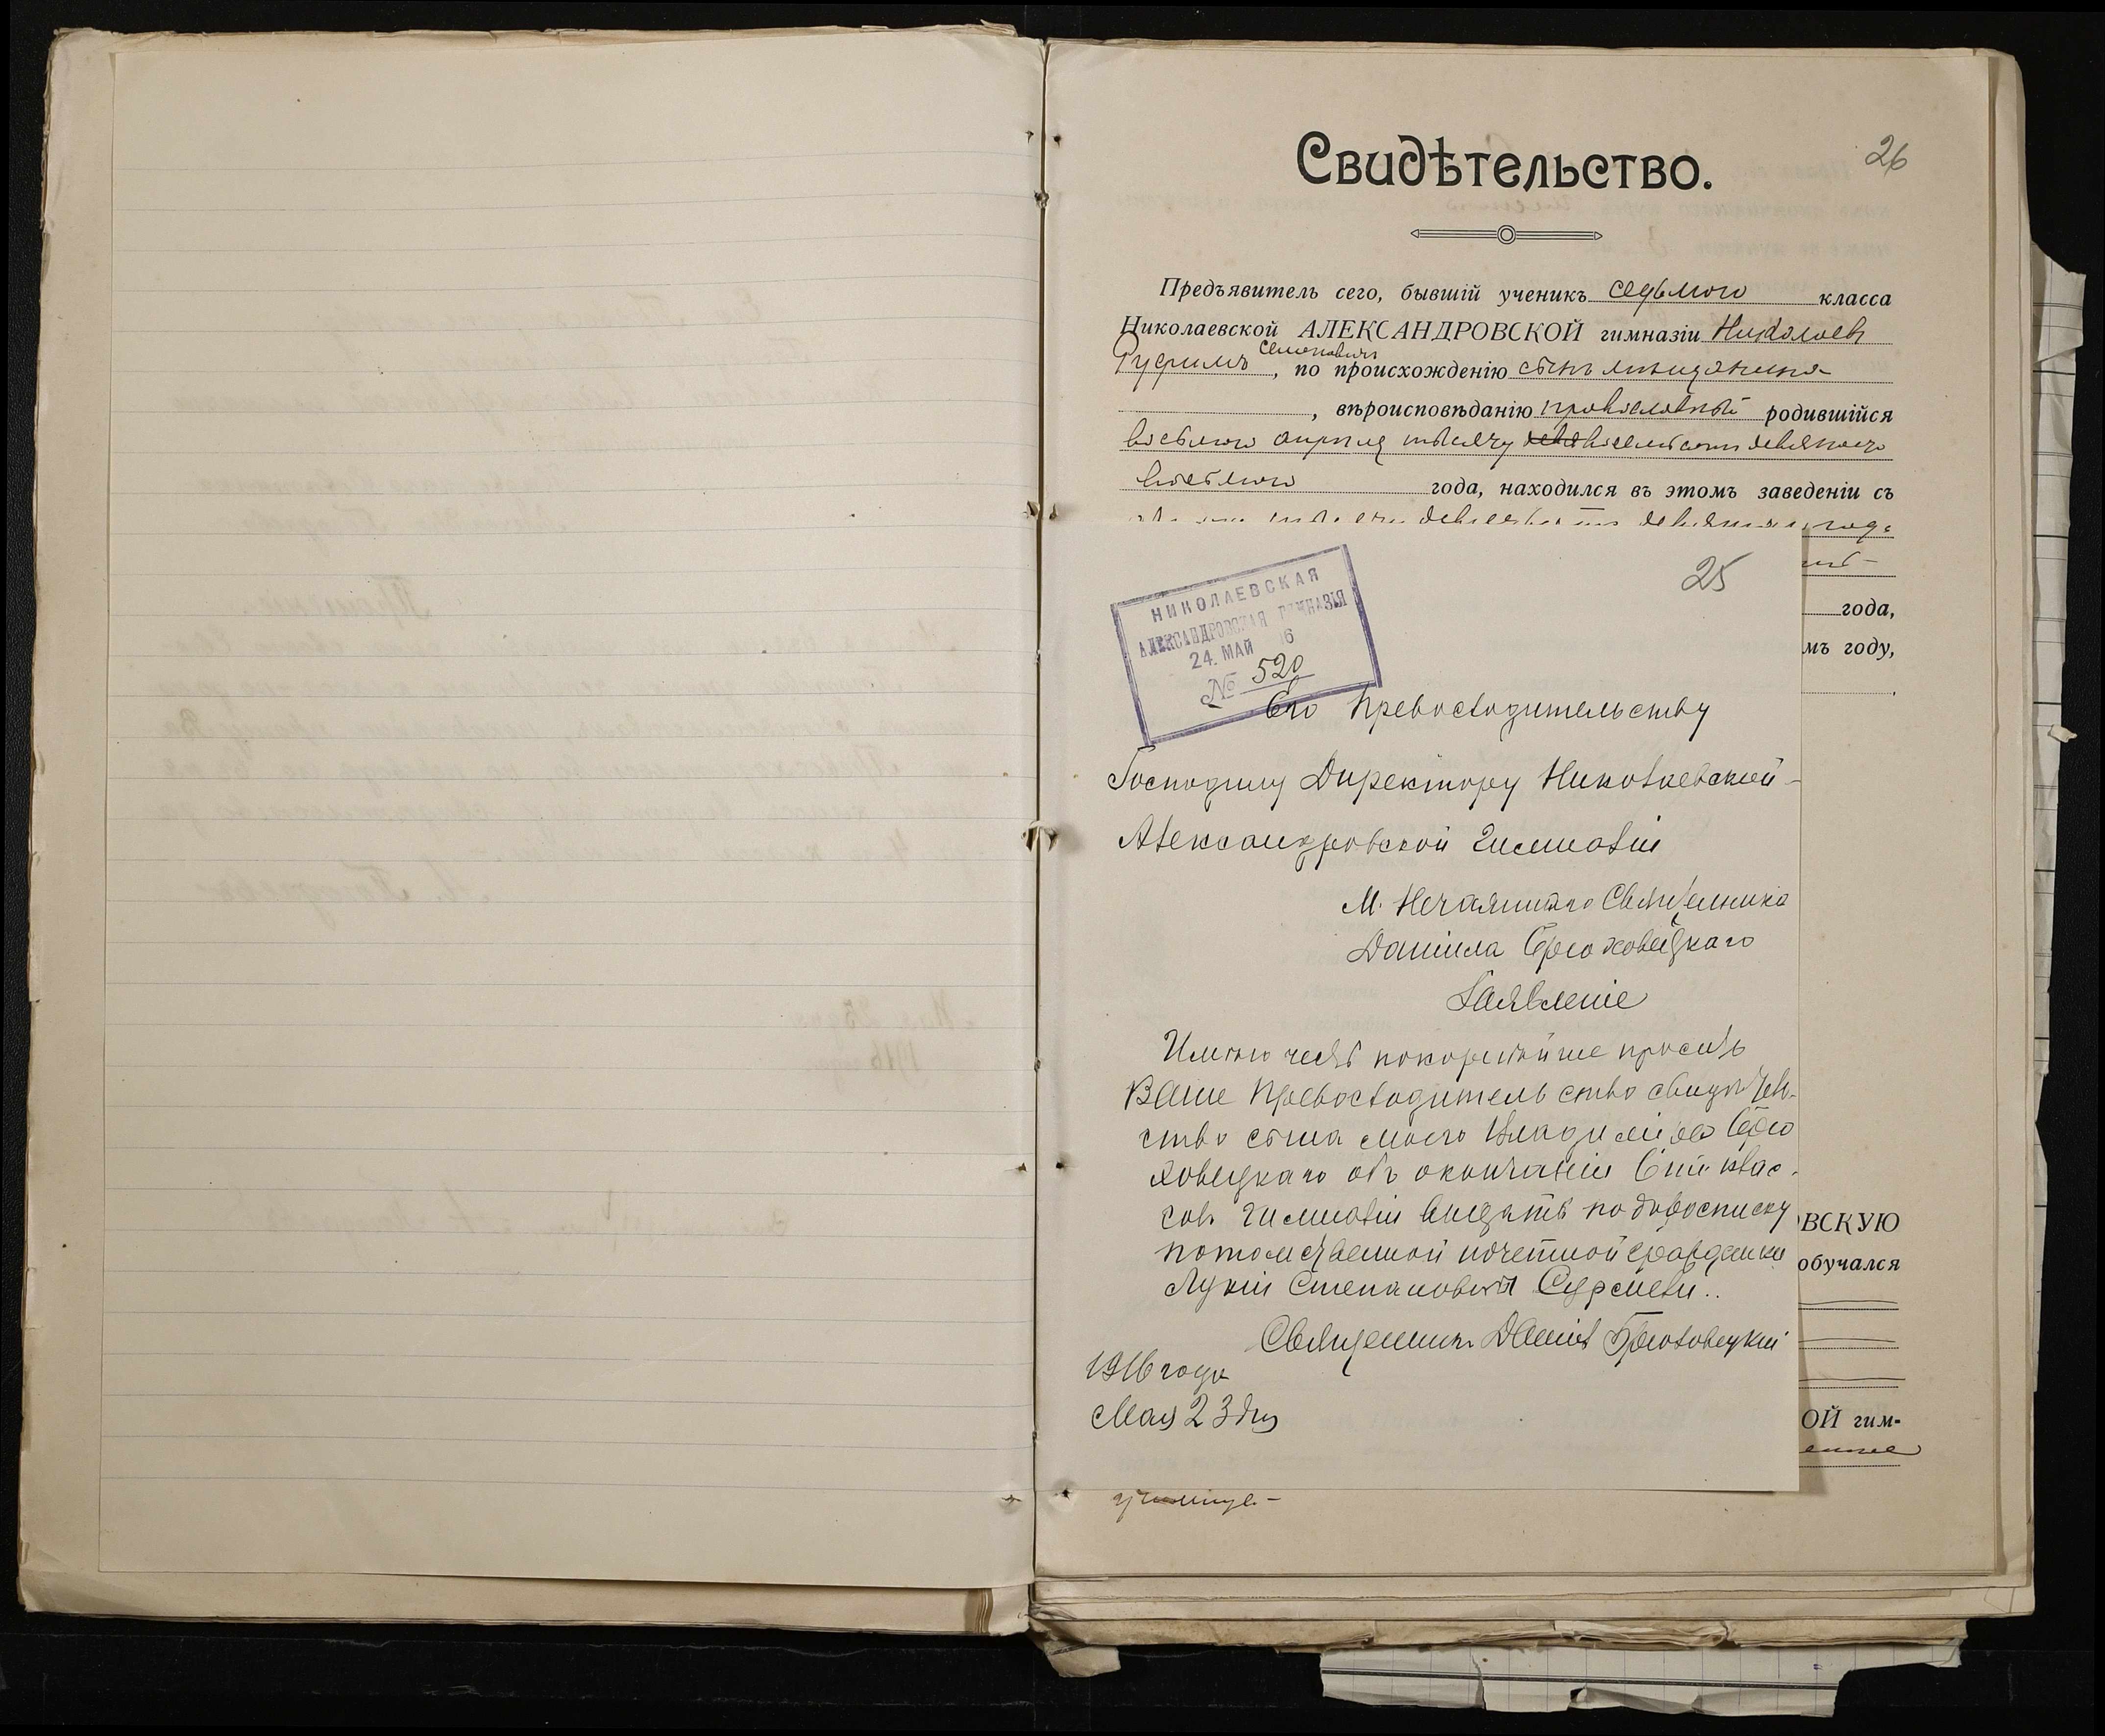 Свидѣтельство.
26
Предъявитель сего, бывшій ученикъ седьмого класса
Николаевской АЛЕКСАНДРОВСКОЙ гимназіи Николаевъ
Семеновичъ
, по происхожденію сынъ мѣщанина
, вѣроисповѣданію православный родившійся
восьмого апрѣля тысячу восемьсотъ девяносто
восьмого года, находился въ этомъ заведеніи съ
года
25
года,
мъ году,
НИКОЛАЕВСКАЯ
АЛЕКСАНДРОВСКАЯ ГИМНАЗІЯ
24. МАЙ 16
№ 520
Его Превосходительству
Господину Директору Николаевской-
Александровской Гимназіи
М. Нечаяннаго Священника
Даніила Брюховецкаго
Заявленіе
Имѣю честь покорнѣйше просить
Ваше Превосходительство свидѣтель-
ство сына моего Владиміра Брю
ховецкаго объ окончаніи 6ти клас-
совъ Гимназіи выдать подъ росписку
потомственной почетной гражданки
Лукіи Степановны
Священникъ Даніилъ Брюховецкій
1916 года
Мая 23 дня
ОВСКУЮ
обучался
ОЙ гим-
училище.-